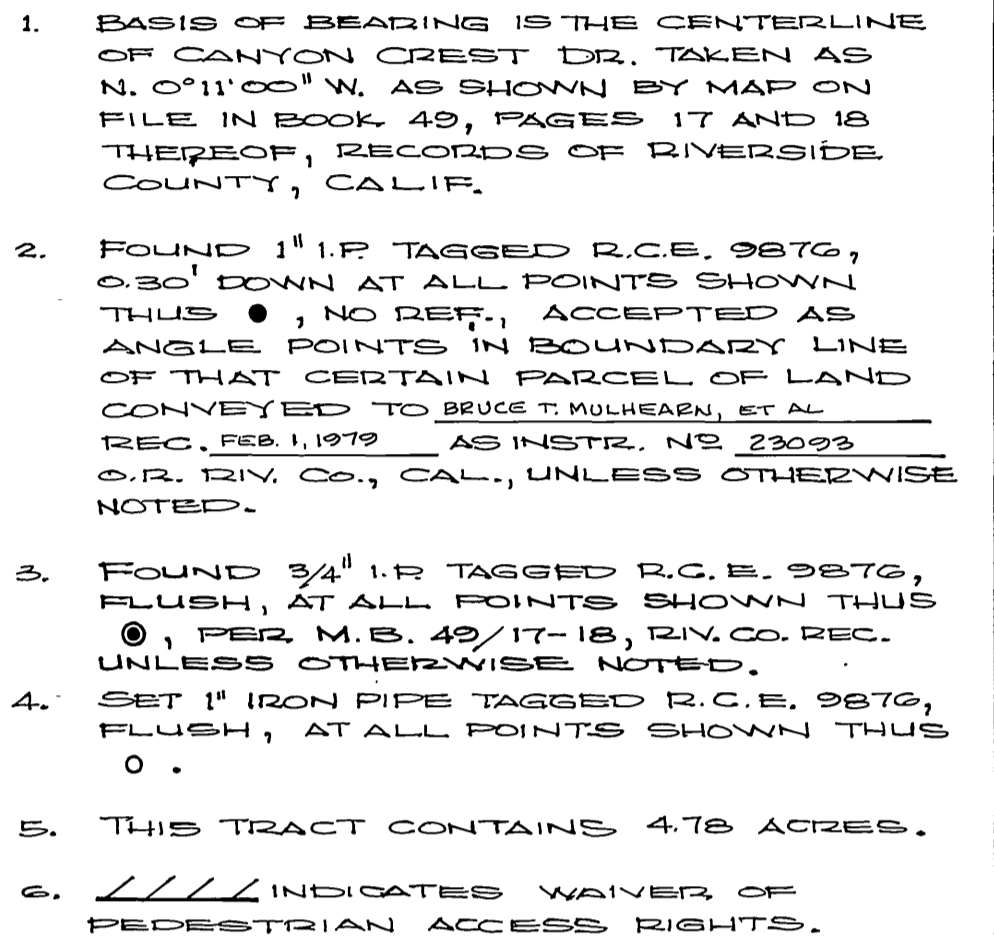 1. BASIS OF BEARING IS THE CENTERLINE
OF CANYON CREST DR. TAKEN AS
N. 0°11'00" W. AS SHOWN BY MAP ON
FILE IN BOOK 49, PAGES 17 AND 18
THEREOF, RECORDS OF RIVERSIDE
COUNTY, CALIF.
2. FOUND 1" I.P. TAGGED R.C.E. 9876,
0.30' DOWN AT ALL POINTS SHOWN
THUS ●, NO REF., ACCEPTED AS
ANGLE POINTS IN BOUNDARY LINE
OF THAT CERTAIN PARCEL OF LAND
CONVEYED TO BRUCE T. MULHEARN, ET AL
REC. FEB. 1, 1979 AS INSTR. Nº 23093
O.R. RIV. CO., CAL., UNLESS OTHERWISE
NOTED.
3. FOUND 3/4" I.P. TAGGED R.C.E. 9876,
FLUSH, AT ALL POINTS SHOWN THUS
◉, PER M.B. 49/17-18, RIV. CO. REC.
UNLESS OTHERWISE NOTED.
4. SET 1" IRON PIPE TAGGED R.C.E. 9876,
FLUSH, AT ALL POINTS SHOWN THUS
○.
5. THIS TRACT CONTAINS 4.78 ACRES.
6. //// INDICATES WAIVER OF
PEDESTRIAN ACCESS RIGHTS.